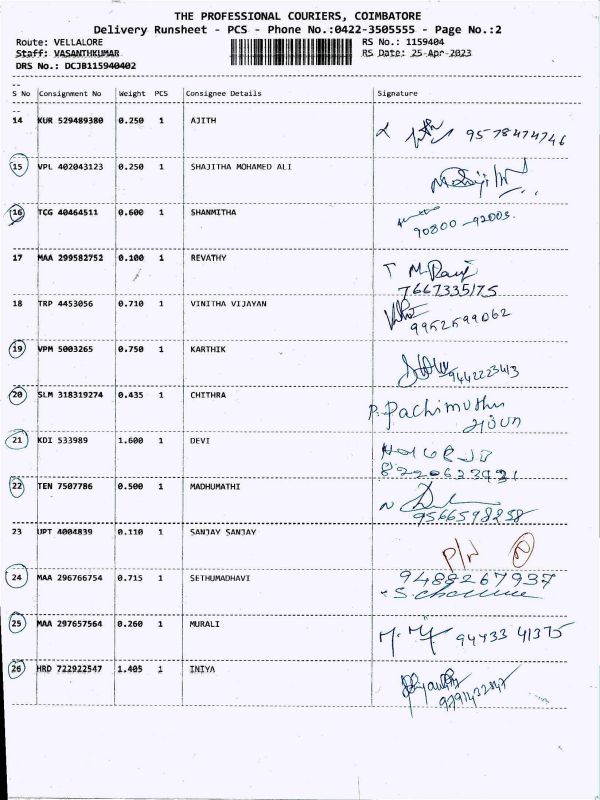 THE PROFESSIONAL COURIERS, COIMBATORE
Delivery Runsheet - PCS - Phone No.:0422-3505555 - Page No.:2
Route: VELLALORE RS No.: 1159404
Staff: VASANTHKUMAR RS Date: 25-Apr-2023
DRS No.: DCJB115940402
S No Consignment No Weight PCS Consignee Details Signature
14 KUR 529489380 0.250 1 AJITH 9578474746
15 VPL 402043123 0.250 1 SHAJITHA MOHAMED ALI
16 TCG 40464511 0.600 1 SHANMITHA 90800-92003.
17 MAA 299582752 0.100 1 REVATHY
7667335175
18 TRP 4453056 0.710 1 VINITHA VIJAYAN
9952599062
19 VPM 5003265 0.750 1 KARTHIK
9442223413
20 SLM 318319274 0.435 1 CHITHRA P. Pachimuthu
21 KDI 533989 1.600 1 DEVI
8220623921
22 TEN 7507786 0.500 1 MADHUMATHI
9566598258
23 UPT 4004839 0.110 1 SANJAY SANJAY
P/N
24 MAA 296766754 0.715 1 SETHUMADHAVI 9489267937
25 MAA 297657564 0.260 1 MURALI 94433 41375
26 HRD 722922547 1.405 1 INIYA
9791432847